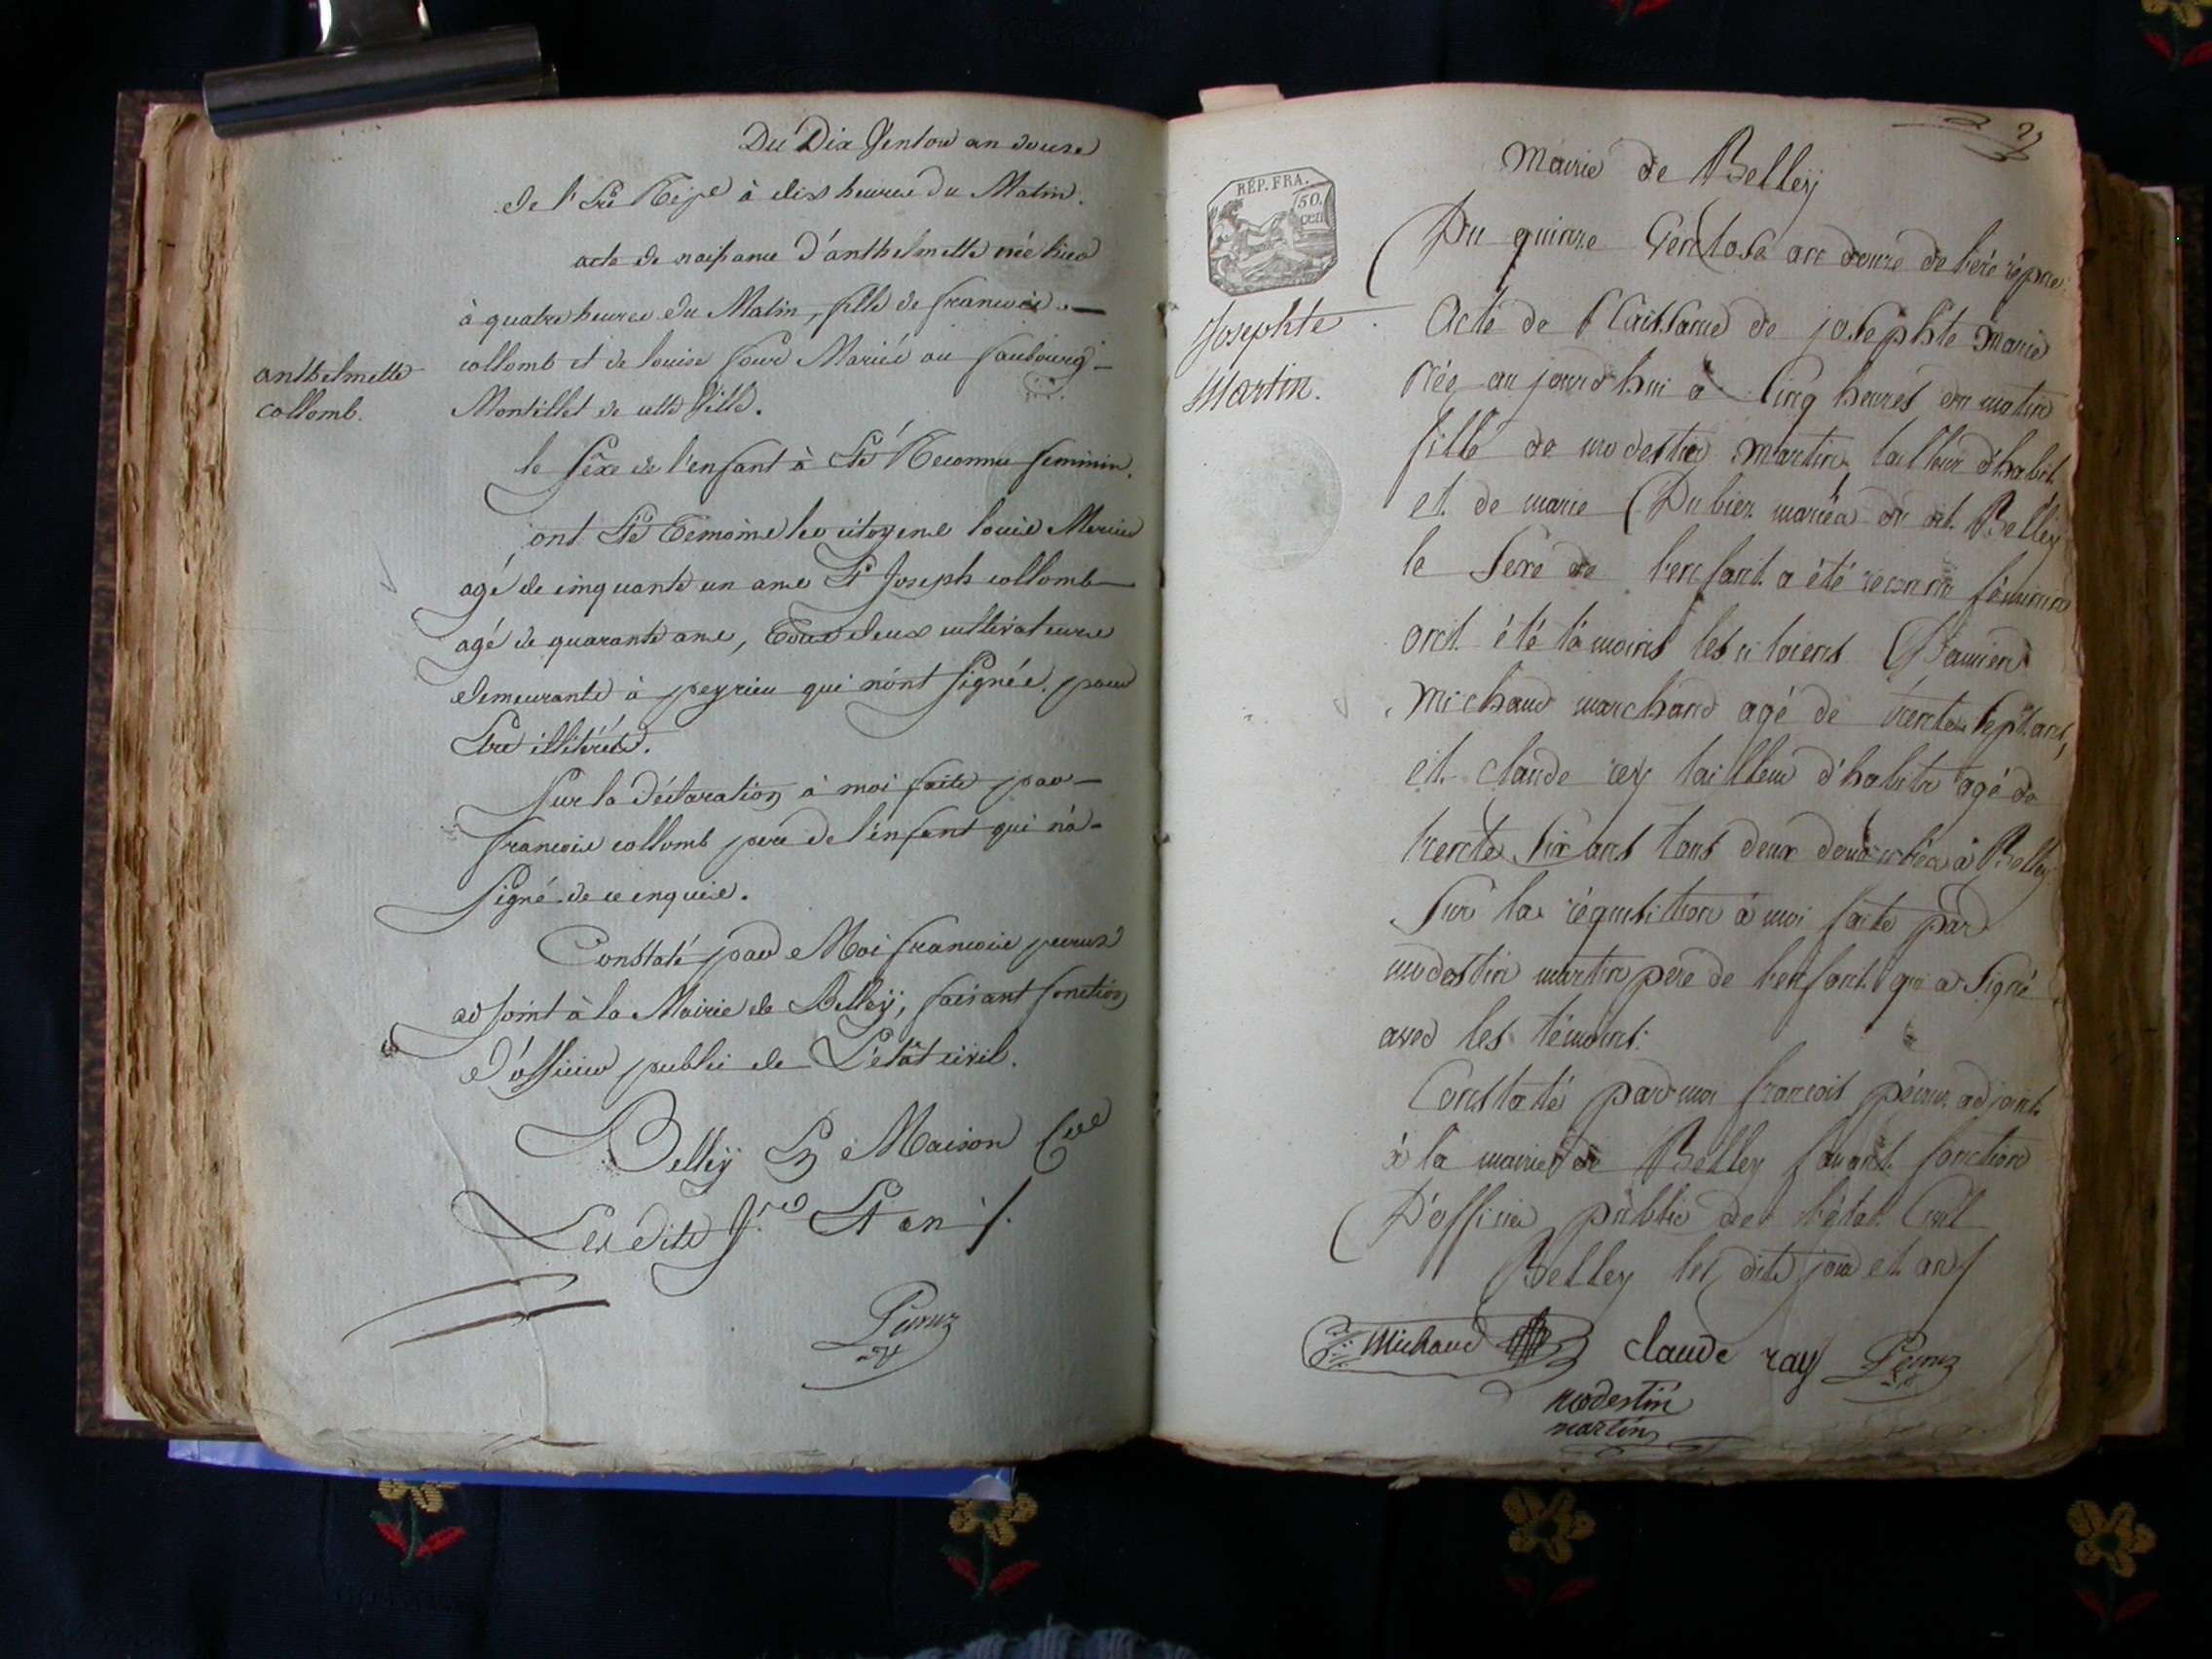 Du Dix Ventose an douze
de l'Ere Rép.e à dix heures du Matin.
acte de naissance d'anthelmette née hier
à quatre heures du Matin, fille de francois
collomb et de louise Mariés au faubourg
Montillet de cette Ville.
anthelmette
collomb.
le sexe de l'enfant à Eté Reconnu feminin.
ont Eté Temoins les citoyens louis Mercier
agé de cinquante un ans Et Joseph collomb
agé de quarante ans, Tous deux cultivateurs
demeurants à peyrieu qui n'ont signés pour
Etre illitérés.
Sur la déclaration à moi faite par
francois collomb pere de l'enfant qui n'a
signé de ce enquis.
Constaté par Moi francois peruz
adjoint à la Mairie de Belleÿ, faisant fonction
d'officier public de L'état civil.
Belleÿ En Maison Cne
Les dits J.r Et an
Peruz
Mairie de Belleÿ
RÉP. FRA.
50.
cen
Du quinze Ventose an douze de l'ére répne
Josephte
Martin.
Acte de Naissance de josephte marie
née aujourdhui a Cinq heures du matin
fille de modestin martin tailleur d'habit
et de marie Dubien mariéa du dit Belley
le Sexe de l'enfant a été reconnu féminin
ont été témoins les citoiens Damien
Michaud marchand agé de trente sept ans,
et claude rey tailleur d'habits agé de
trente Six ans tous deux à Belley
Sur la réquisition à moi faite par
modestin martin pére de l'enfant qui a Signé
avec les témoins.
Constaté par moi françois péruz adjoint
à la mairie de Belley faisant fonction
D'officier public de l'état Civil
Belley les dits jour et an
Michaud claude ray Peruz
modestin
martin